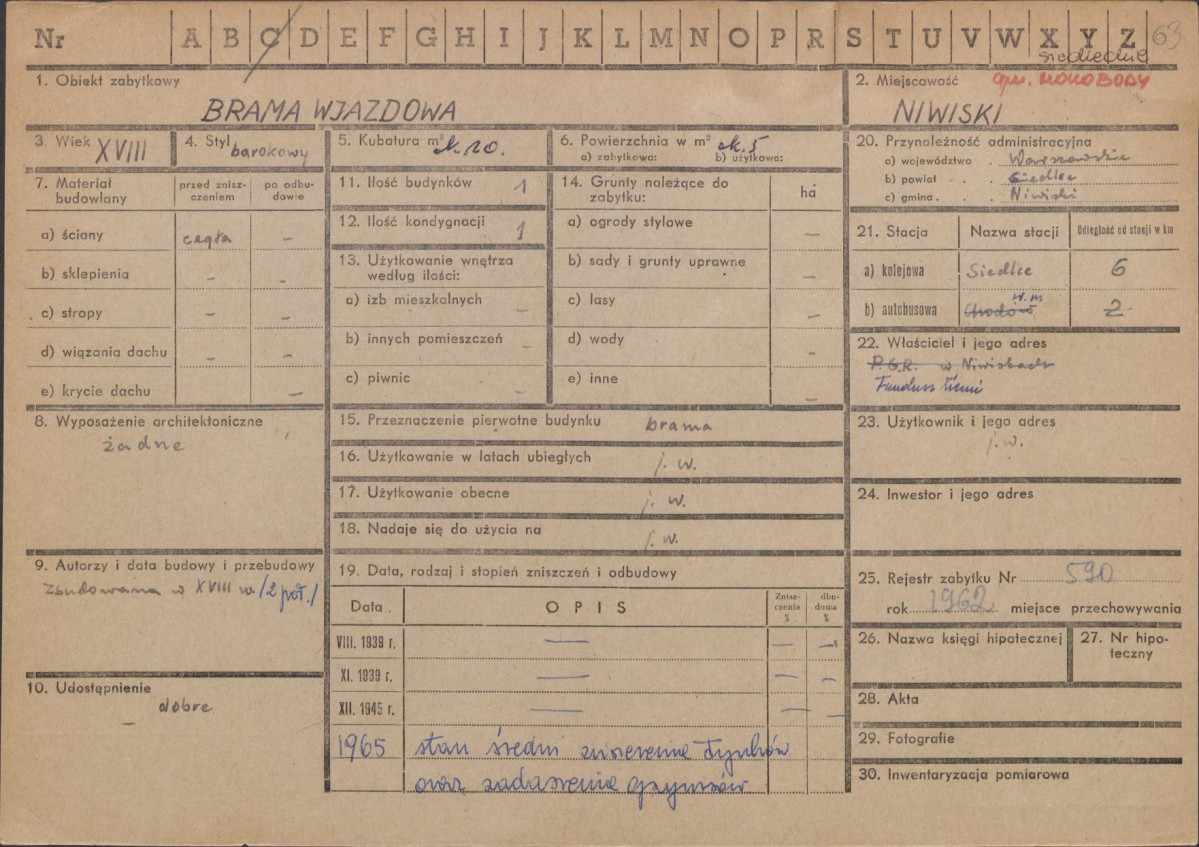 Nr A B C D E F G H I J K L M N O P R S T U V W X Y Z 63
siedleckie
1. Obiekt zabytkowy
BRAMA WJAZDOWA
2. Miejscowość gm. MOKOBODY
NIWISKI
3. Wiek XVIII
4. Styl barokowy
5. Kubatura m³ ok. 20.
6. Powierzchnia w m² ok. 5
a) zabytkowa: b) użytkowa:
7. Materiał budowlany
przed zniszczeniem
po odbudowie
a) ściany cegła –
b) sklepienia – –
c) stropy – –
d) wiązania dachu – –
e) krycie dachu –
8. Wyposażenie architektoniczne
żadne
9. Autorzy i data budowy i przebudowy
Zbudowana w XVIII w /2 poł./
10. Udostępnienie
dobre
–
11. Ilość budynków 1
12. Ilość kondygnacji 1
13. Użytkowanie wnętrza
według ilości:
a) izb mieszkalnych –
b) innych pomieszczeń –
c) piwnic –
14. Grunty należące do
zabytku: ha
a) ogrody stylowe –
b) sady i grunty uprawne –
c) lasy –
d) wody –
e) inne –
15. Przeznaczenie pierwotne budynku brama
16. Użytkowanie w latach ubiegłych j. w.
17. Użytkowanie obecne j. w.
18. Nadaje się do użycia na j. w.
19. Data, rodzaj i stopień zniszczeń i odbudowy
Data OPIS Zniszczenia % dbudowa %
VIII. 1939 r. — — —
XI. 1939 r. — — –
XII. 1945 r. — — –
1965 stan średni zniszczenie tynków
oraz zadaszenia gzymsów
20. Przynależność administracyjna
a) województwo Warszawskie
b) powiat Siedlce
c) gmina Niwiski
21. Stacja Nazwa stacji Odległość od stacji w km
a) kolejowa Siedlce 6
w. m
b) autobusowa Chodów 2
22. Właściciel i jego adres
P.G.R. w Niwiskach
Fundusz Ziemi
23. Użytkownik i jego adres
j. w.
24. Inwestor i jego adres
25. Rejestr zabytku Nr 590
rok 1962 miejsce przechowywania
26. Nazwa księgi hipotecznej
27. Nr hipoteczny
28. Akta
29. Fotografie
30. Inwentaryzacja pomiarowa